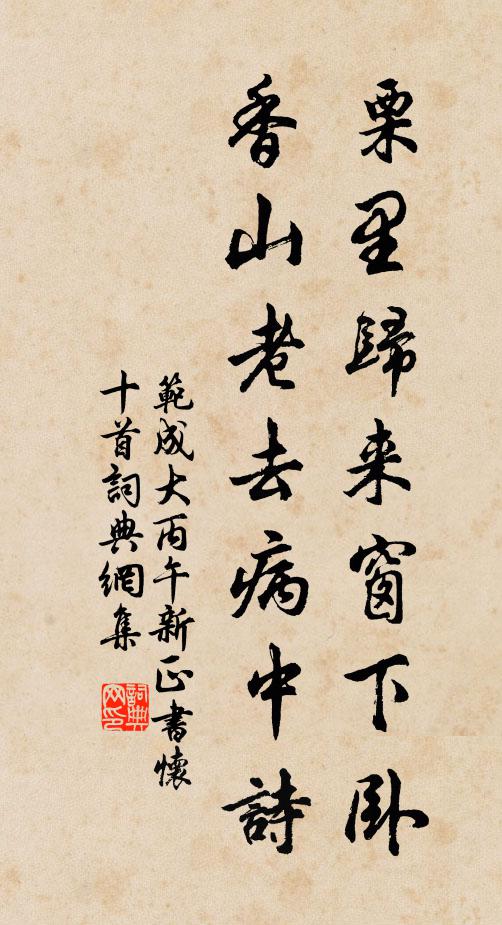 栗里歸来窗下卧
香山老去病中詩
範成大丙午新正書懷
十首詞典網集
詞典
网印